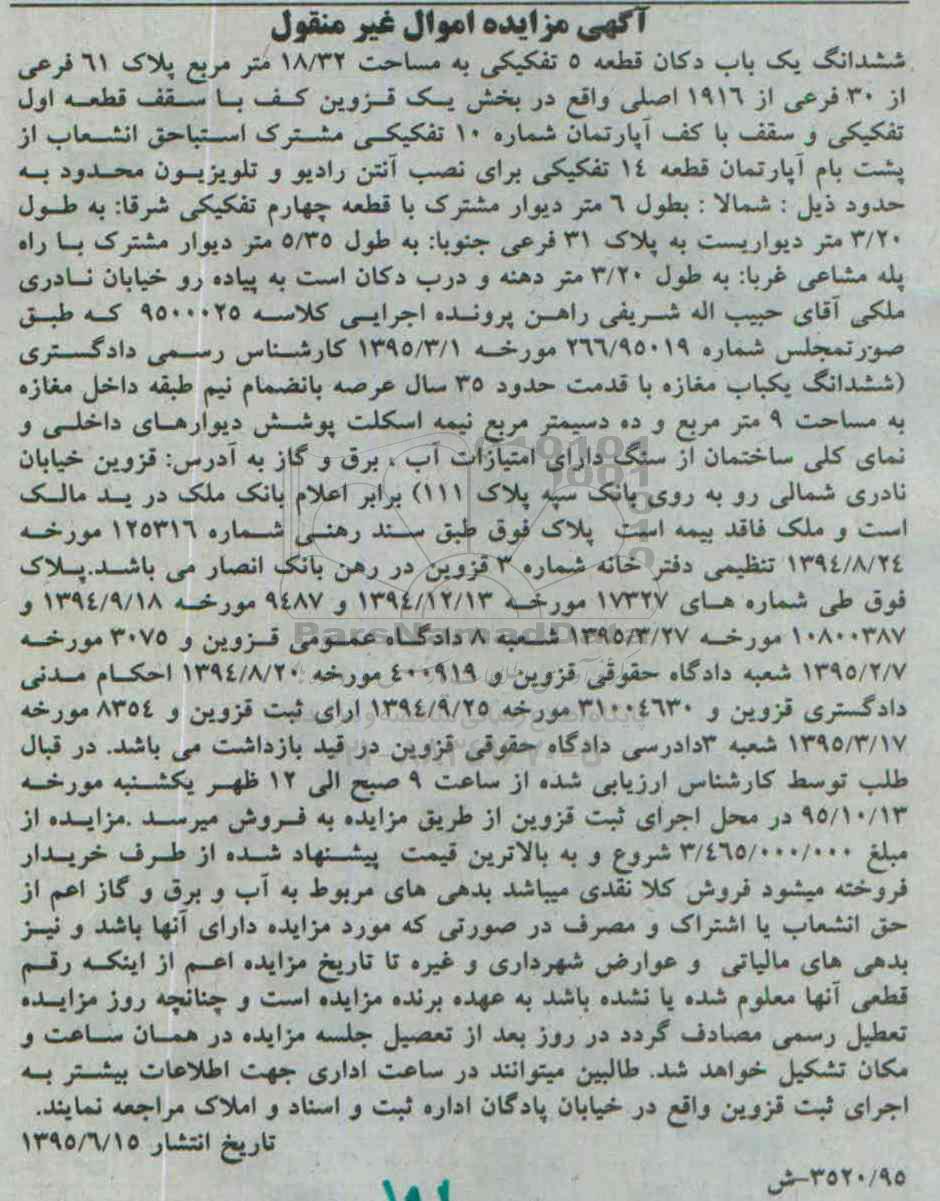 آگهی مزایده اموال غیر منقول
ششدانگ یک باب دکان قطعه ٥ تفکیکی به مساحت ١٨/٣٢ متر مربع پلاک ٦١ فرعی
از ٣٠ فرعی از ١٩١٦ اصلی واقع در بخش یک قزوین کف با سقف قطعه اول
تفکیکی و سقف با کف آپارتمان شماره ١٠ تفکیکی مشترک استباحق انشعاب از
پشت بام آپارتمان قطعه ١٤ تفکیکی برای نصب آنتن رادیو و تلویزیون محدود به
حدود ذیل : شمالا : بطول ٦ متر دیوار مشترک با قطعه چهارم تفکیکی شرقا: به طول
٣/٢٠ متر دیواریست به پلاک ٣١ فرعی جنوبا: به طول ٥/٣٥ متر دیوار مشترک با راه
پله مشاعی غربا: به طول ٣/٢٠ متر دهنه و درب دکان است به پیاده رو خیابان نادری
ملکی آقای حبیب اله شریفی راهن پرونده اجرایی کلاسه ٩٥٠٠٠٢٥ که طبق
صورتمجلس شماره ٢٦٦/٩٥٠١٩ مورخه ١٣٩٥/٣/١ کارشناس رسمی دادگستری
(ششدانگ یکباب مغازه با قدمت حدود ٣٥ سال عرصه بانضمام نیم طبقه داخل مغازه
به مساحت ٩ متر مربع و ده دسیمتر مربع نیمه اسکلت پوشش دیوارهای داخلی و
نمای کلی ساختمان از سنگ دارای امتیازات آب ، برق و گاز به آدرس: قزوین خیابان
نادری شمالی رو به روی بانک سپه پلاک ١١١) برابر اعلام بانک ملک در ید مالک
است و ملک فاقد بیمه است پلاک فوق طبق سند رهنی شماره ١٢٥٣١٦ مورخه
١٣٩٤/٨/٢٤ تنظیمی دفتر خانه شماره ٣ قزوین در رهن بانک انصار می باشد.پلاک
فوق طی شماره های ١٧٣٢٧ مورخه ١٣٩٤/١٢/١٣ و ٩٤٨٧ مورخه ١٣٩٤/٩/١٨ و
١٠٨٠٠٣٨٧ مورخه ١٣٩٥/٣/٢٧ شعبه ٨ دادگاه عمومی قزوین و ٣٠٧٥ مورخه
١٣٩٥/٢/٧ شعبه دادگاه حقوقی قزوین و ٤٠٠٩١٩ مورخه ١٣٩٤/٨/٢٠ احکام مدنی
دادگستری قزوین و ٣١٠٠٤٦٣٠ مورخه ١٣٩٤/٩/٢٥ ارای ثبت قزوین و ٨٣٥٤ مورخه
١٣٩٥/٣/١٧ شعبه ٣دادرسی دادگاه حقوقی قزوین در قید بازداشت می باشد. در قبال
طلب توسط کارشناس ارزیابی شده از ساعت ٩ صبح الی ١٢ ظهر یکشنبه مورخه
٩٥/١٠/١٣ در محل اجرای ثبت قزوین از طریق مزایده به فروش میرسد .مزایده از
مبلغ ٣/٤٦٥/٠٠٠/٠٠٠ شروع و به بالاترین قیمت پیشنهاد شده از طرف خریدار
فروخته میشود فروش کلا نقدی میباشد بدهی های مربوط به آب و برق و گاز اعم از
حق انشعاب یا اشتراک و مصرف در صورتی که مورد مزایده دارای آنها باشد و نیز
بدهی های مالیاتی و عوارض شهرداری و غیره تا تاریخ مزایده اعم از اینکه رقم
قطعی آنها معلوم شده یا نشده باشد به عهده برنده مزایده است و چنانچه روز مزایده
تعطیل رسمی مصادف گردد در روز بعد از تعصیل جلسه مزایده در همان ساعت و
مکان تشکیل خواهد شد. طالبین میتوانند در ساعت اداری جهت اطلاعات بیشتر به
اجرای ثبت قزوین واقع در خیابان پادگان اداره ثبت و اسناد و املاک مراجعه نمایند.
تاریخ انتشار ١٣٩٥/٦/١٥
٣٥٢٠/٩٥-ش